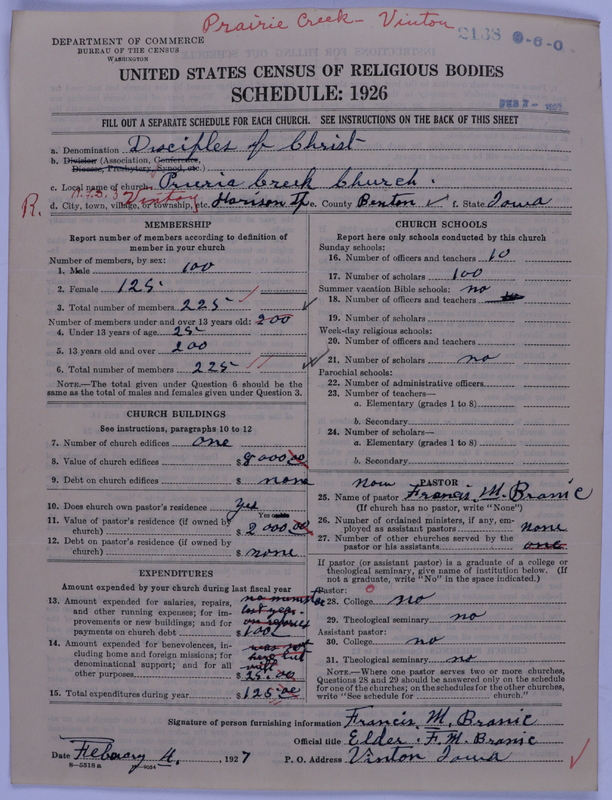 Prairie Creek - Vinton
2138 9-6-0
DEPARTMENT OF COMMERCE
BUREAU OF THE CENSUS
WASHINGTON
UNITED STATES CENSUS OF RELIGIOUS BODIES
SCHEDULE: 1926
FEB 7 - 1927
FILL OUT A SEPARATE SCHEDULE FOR EACH CHURCH. SEE INSTRUCTIONS ON THE BACK OF THIS SHEET
a. Denomination Disciples of Christ
b. Division (Association, Conference, Diocese, Presbytery, Synod, etc.)
c. Local name of church Prieria Creek Church.
R. R.F.D. 3 Vinton
d. City, town, village, or township, etc. Harison Tp e. County Benton f. State Iowa
MEMBERSHIP
Report number of members according to definition of member in your church
Number of members, by sex:
1. Male 100
2. Female 125
3. Total number of members 225
Number of members under and over 13 years old: 200
4. Under 13 years of age 25
5. 13 years old and over 200
6. Total number of members 225
NOTE.—The total given under Question 6 should be the same as the total of males and females given under Question 3.
CHURCH BUILDINGS
See instructions, paragraphs 10 to 12
7. Number of church edifices one
8. Value of church edifices $8000.00
9. Debt on church edifices $ none
10. Does church own pastor's residence yes
Yes or no
11. Value of pastor's residence (if owned by church) $2000.00
12. Debt on pastor's residence (if owned by church) $ none
EXPENDITURES
Amount expended by your church during last fiscal year
13. Amount expended for salaries, repairs, and other running expenses; for improvements or new buildings; and for payments on church debt
no minister last year. $100
14. Amount expended for benevolences, including home and foreign missions; for denominational support; and for all other purposes $25.00
15. Total expenditures during year $125.00
CHURCH SCHOOLS
Report here only schools conducted by this church
Sunday schools:
16. Number of officers and teachers 10
17. Number of scholars 100
Summer vacation Bible schools: no
18. Number of officers and teachers
19. Number of scholars
Week-day religious schools:
20. Number of officers and teachers
21. Number of scholars no
Parochial schools:
22. Number of administrative officers
23. Number of teachers—
a. Elementary (grades 1 to 8)
b. Secondary
24. Number of scholars—
a. Elementary (grades 1 to 8)
b. Secondary
now PASTOR
25. Name of pastor Francis. M. Branic
(If church has no pastor, write "None")
26. Number of ordained ministers, if any, employed as assistant pastors none
27. Number of other churches served by the pastor or his assistants one
If pastor (or assistant pastor) is a graduate of a college or theological seminary, give name of institution below. (If not a graduate, write "No" in the space indicated.)
Pastor:
28. College no
29. Theological seminary no
Assistant pastor:
30. College no
31. Theological seminary no
NOTE.—Where one pastor serves two or more churches, Questions 28 and 29 should be answered only on the schedule for one of the churches; on the schedules for the other churches, write "See schedule for ........ church."
Signature of person furnishing information Francis, M, Branic
Official title Elder. F. M. Branic
Date Febuary 4, 1927 P. O. Address Vinton Iowa
8-5518 a